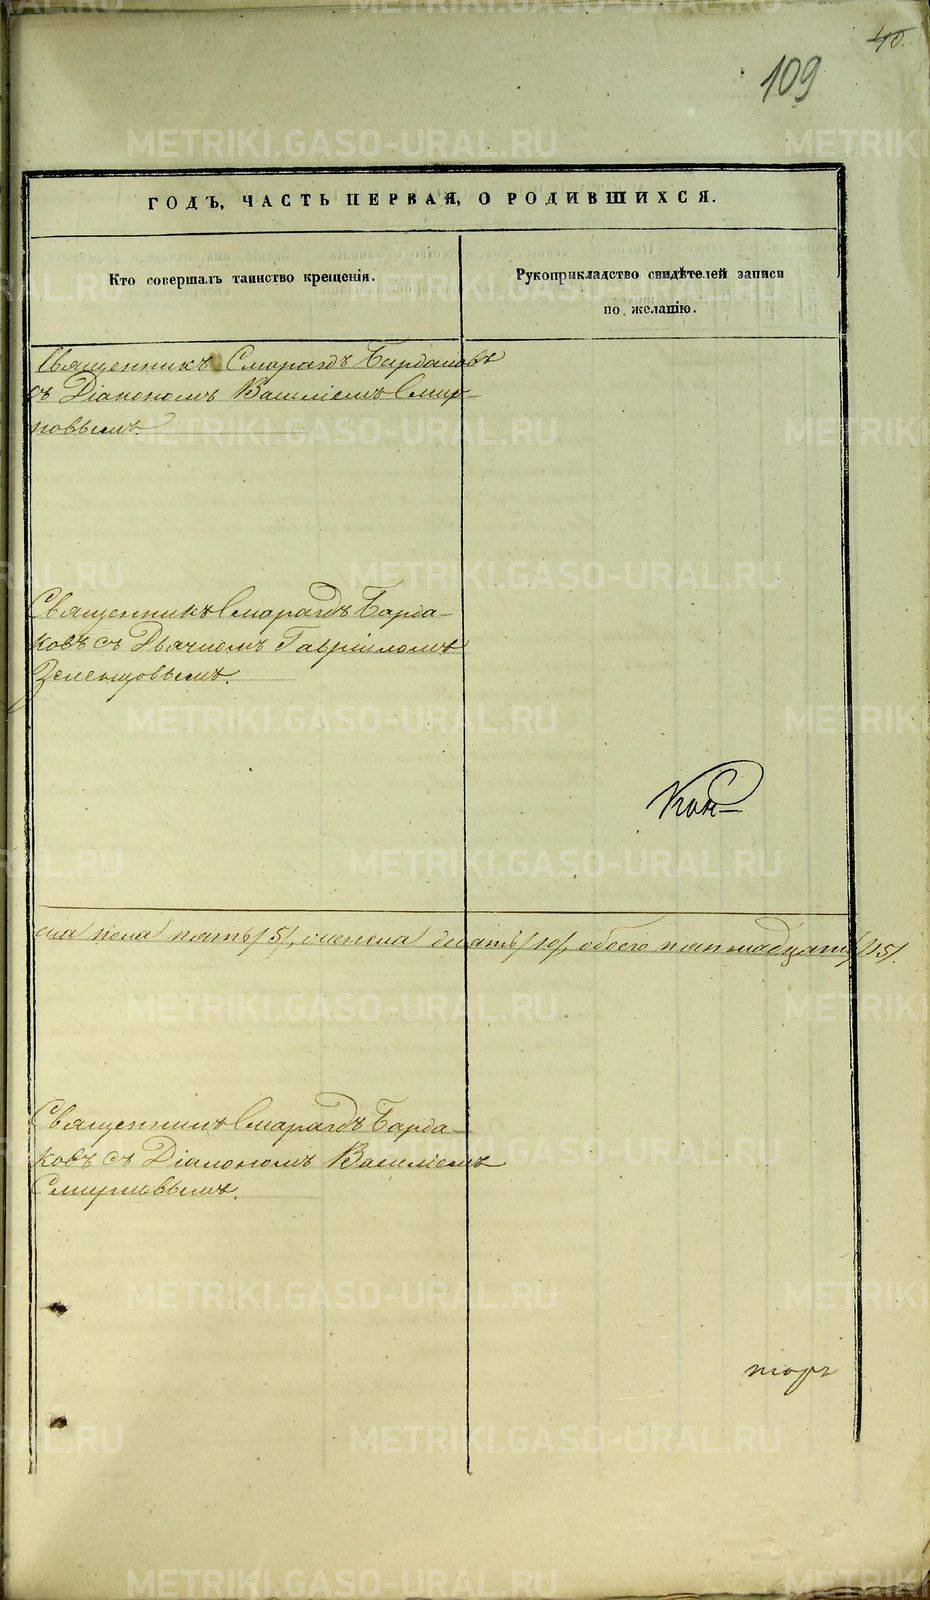 40.
109
ГОДЪ, ЧАСТЬ ПЕРВАЯ, О РОДИВШИХСЯ.
Кто совершалъ таинство крещенія.
Рукоприкладство свидѣтелей записи
по желанію.
Священникъ Смарагдъ Бардаковъ
съ Діакономъ Василіемъ Смир-
новымъ.
Священникъ Смарагдъ Барда-
ковъ съ Дьячкомъ Гавріиломъ
Зеленцовымъ.
Кон-
ска пола пять /5/, женска десять /10/, обоего пятнадцать /15/.
Священникъ Смарагдъ Барда-
ковъ съ Діакономъ Василіемъ
Смирновымъ.
тор
METRIKI.GASO-URAL.RU